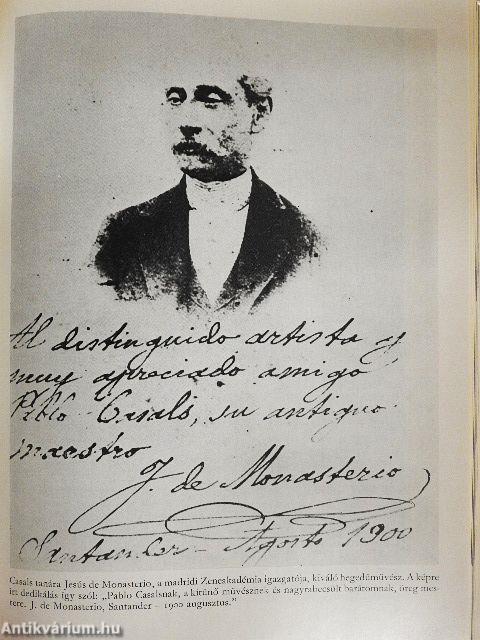 Al distinguido artista y
muy apreciado amigo
Pablo Casals, su antiguo
maestro
J. de Monasterio
Santander - Agosto 1900
Casals tanára Jesús de Monasterio, a madridi Zeneakadémia igazgatója, kiváló hegedűművész. A képre
írt dedikálás így szól: „Pablo Casalsnak, a kitűnő művésznek és nagyrabecsült barátomnak, öreg mes-
tere. J. de Monasterio, Santander – 1900 augusztus.”
Antikvárium.hu